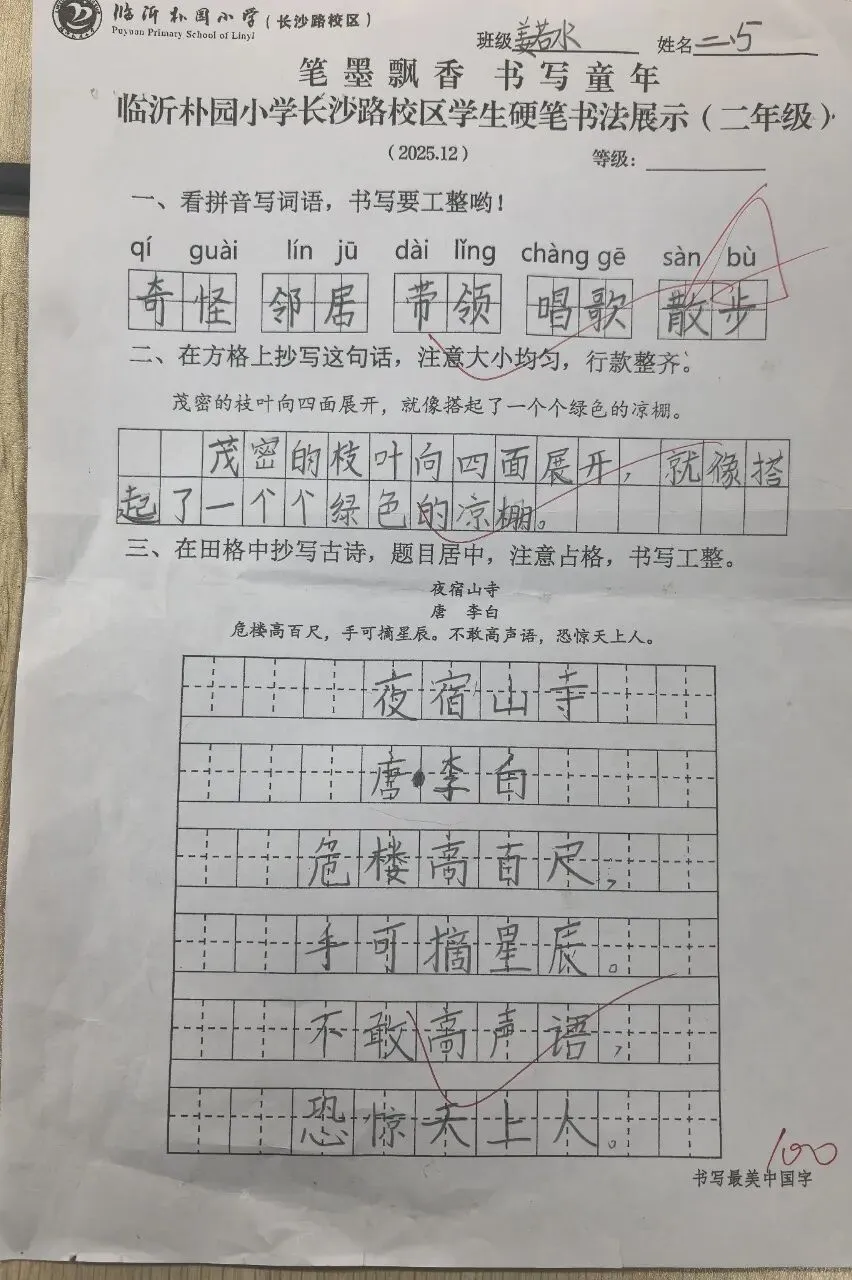 临沂朴园小学（长沙路校区）
Puyuan Primary School of Linyi
班级 姜若水 姓名 二.5
笔墨飘香 书写童年
临沂朴园小学长沙路校区学生硬笔书法展示（二年级）
（2025.12） 等级：
一、看拼音写词语，书写要工整哟！
qí guài lín jū dài lǐng chàng gē sàn bù
奇怪 邻居 带领 唱歌 散步
二、在方格上抄写这句话，注意大小均匀，行款整齐。
茂密的枝叶向四面展开，就像搭起了一个个绿色的凉棚。
茂密的枝叶向四面展开，就像搭
起了一个个绿色的凉棚。
三、在田格中抄写古诗，题目居中，注意占格，书写工整。
夜宿山寺
唐 李白
危楼高百尺，手可摘星辰。不敢高声语，恐惊天上人。
夜宿山寺
唐·李白
危楼高百尺，
手可摘星辰。
不敢高声语，
恐惊天上人。
100
书写最美中国字